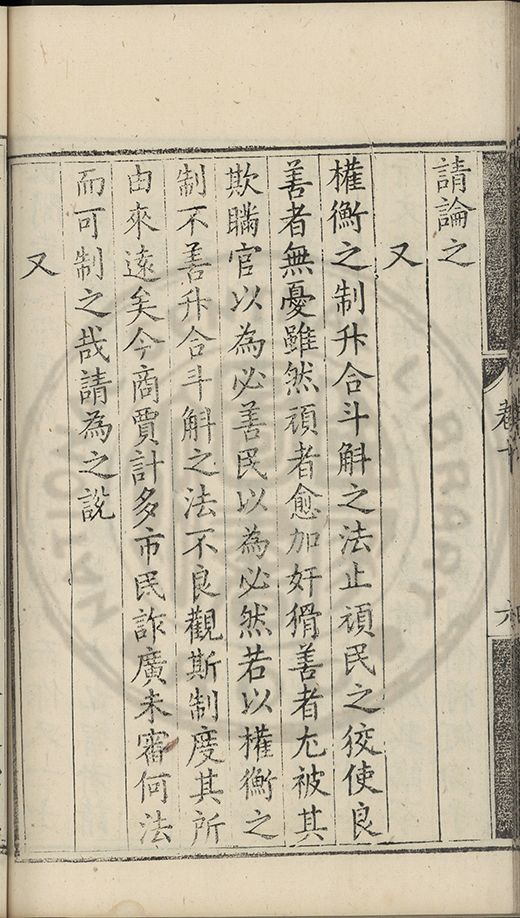 請論之
又
權衡之制升合斗斛之法止頑民之狡使良
善者無憂雖然頑者愈加奸猾善者尢被其
欺瞞官以為必善民以為必然若以權衡之
制不善升合斗斛之法不良觀斯制度其所
由來遠矣今商賈計多市民詐廣未審何法
而可制之哉請為之說
又
卷十
六